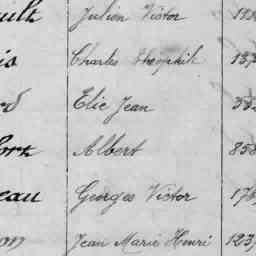 ult Julien Victor
is Charles Théophile
rd Elie Jean
fort Albert 858
eau Georges Victor 176
on Jean Marie Henri 123